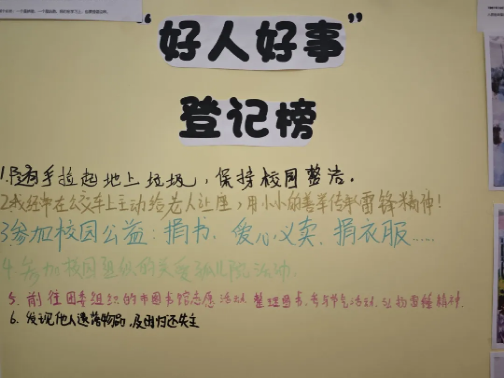 “好人好事”
登记榜
1.随手捡起地上垃圾，保持校园整洁。
2.我经常在公交车上主动给老人让座，用小小的善举传承雷锋精神！
3.参加校园公益：捐书、爱心义卖、捐衣服……
4.参加校园组织的关爱孤儿院活动
5.前往团委组织的市图书馆志愿活动，整理图书，参与节气活动，弘扬雷锋精神.
6.发现他人遗落物品，及时归还失主